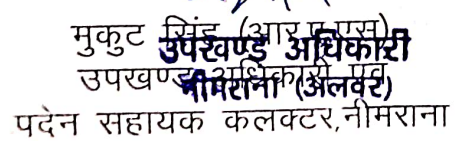 मुकुट सिंह (आर.ए.एस)
उपखण्ड अधिकारी
उपखण्ड अधिकारी एवं
नीमराना (अलवर)
पदेन सहायक कलक्टर,नीमराना